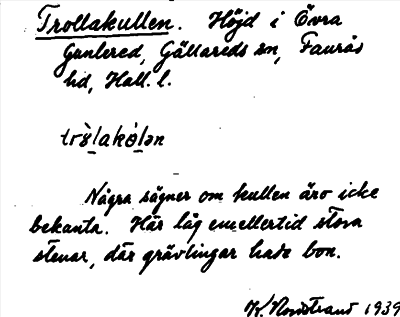 Trollakullen. Höjd i Övra
Gunlered, Gällareds sn, Faurås
hd, Hall. l.
Några sägner om kullen äro icke
bekanta. Här låg emellertid stora
stenar, där grävlingar hade bon.
K. Nordstrand 1939